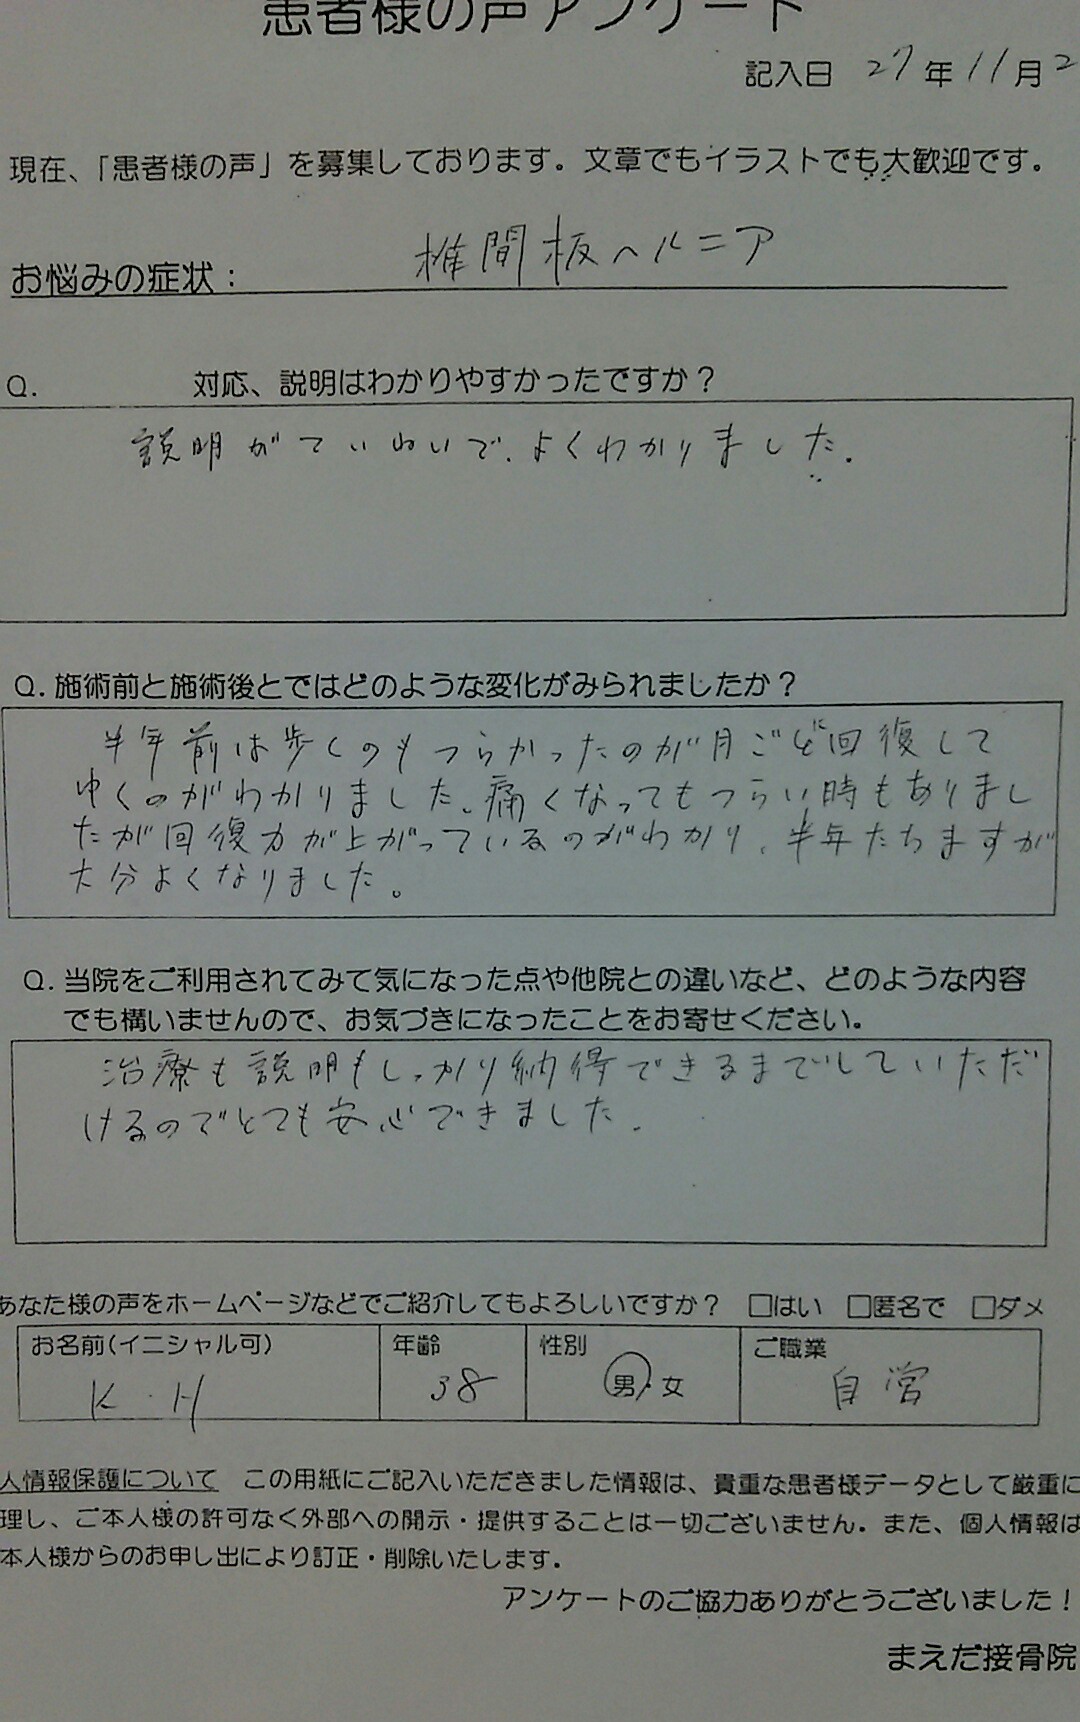 患者様の声アンケート
記入日 27年11月2
現在、「患者様の声」を募集しております。文章でもイラストでも大歓迎です。
お悩みの症状： 椎間板ヘルニア
Q. 対応、説明はわかりやすかったですか？
説明がていねいで、よくわかりました.
Q. 施術前と施術後とではどのような変化がみられましたか？
半年前は歩くのもつらかったのが月ごとに回復して
ゆくのがわかりました、痛くなってもつらい時もありまし
たが回復力が上がっているのがわかり、半年たちますが
大分よくなりました。
Q. 当院をご利用されてみて気になった点や他院との違いなど、どのような内容
でも構いませんので、お気づきになったことをお寄せください。
治療も説明もしっかり納得できるまでしていただ
けるのでとても安心できました.
あなた様の声をホームページなどでご紹介してもよろしいですか？ □はい □匿名で □ダメ
お名前(イニシャル可) 年齢 性別 ご職業
K.H 38 男・女 自営
人情報保護について この用紙にご記入いただきました情報は、貴重な患者様データとして厳重に
理し、ご本人様の許可なく外部への開示・提供することは一切ございません。また、個人情報は
本人様からのお申し出により訂正・削除いたします。
アンケートのご協力ありがとうございました！
まえだ接骨院